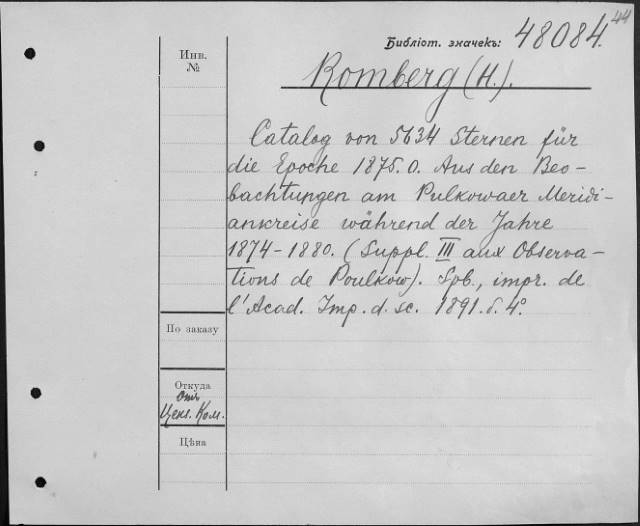 44
Библіот. значекъ: 48084.
Инв.
№
Romberg (H.).
Catalog von 5634 Sternen für
die Epoche 1875.0. Aus den Beo-
bachtungen am Pulkowaer Meridi-
ankreise während der Jahre
1874-1880. (Suppl. III aux Observa-
tions de Poulkow). Spb., impr. de
l'Acad. Imp. d. sc. 1891. 4°.
По заказу
Откуда
Отъ
Ценз. Ком.
Цѣна